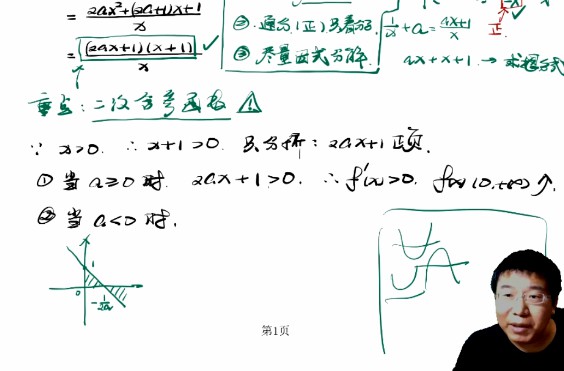 = 2ax²+(2a+1)x+1 / x
= (2ax+1)(x+1) / x ✓
② 通分(正)只看分子 1/x + a = ax+1 / x 正
③ 尽量因式分解. ax+x+1. → 求根公式
重点: 二次含参函数
∵ x>0. ∴ x+1>0. 只分析: 2ax+1 正负.
① 当 a≥0 时. 2ax+1>0. ∴ f'(x)>0. f(x) (0,+∞) ↑.
② 当 a<0 时.
x
1
0
-1/2a
第1页